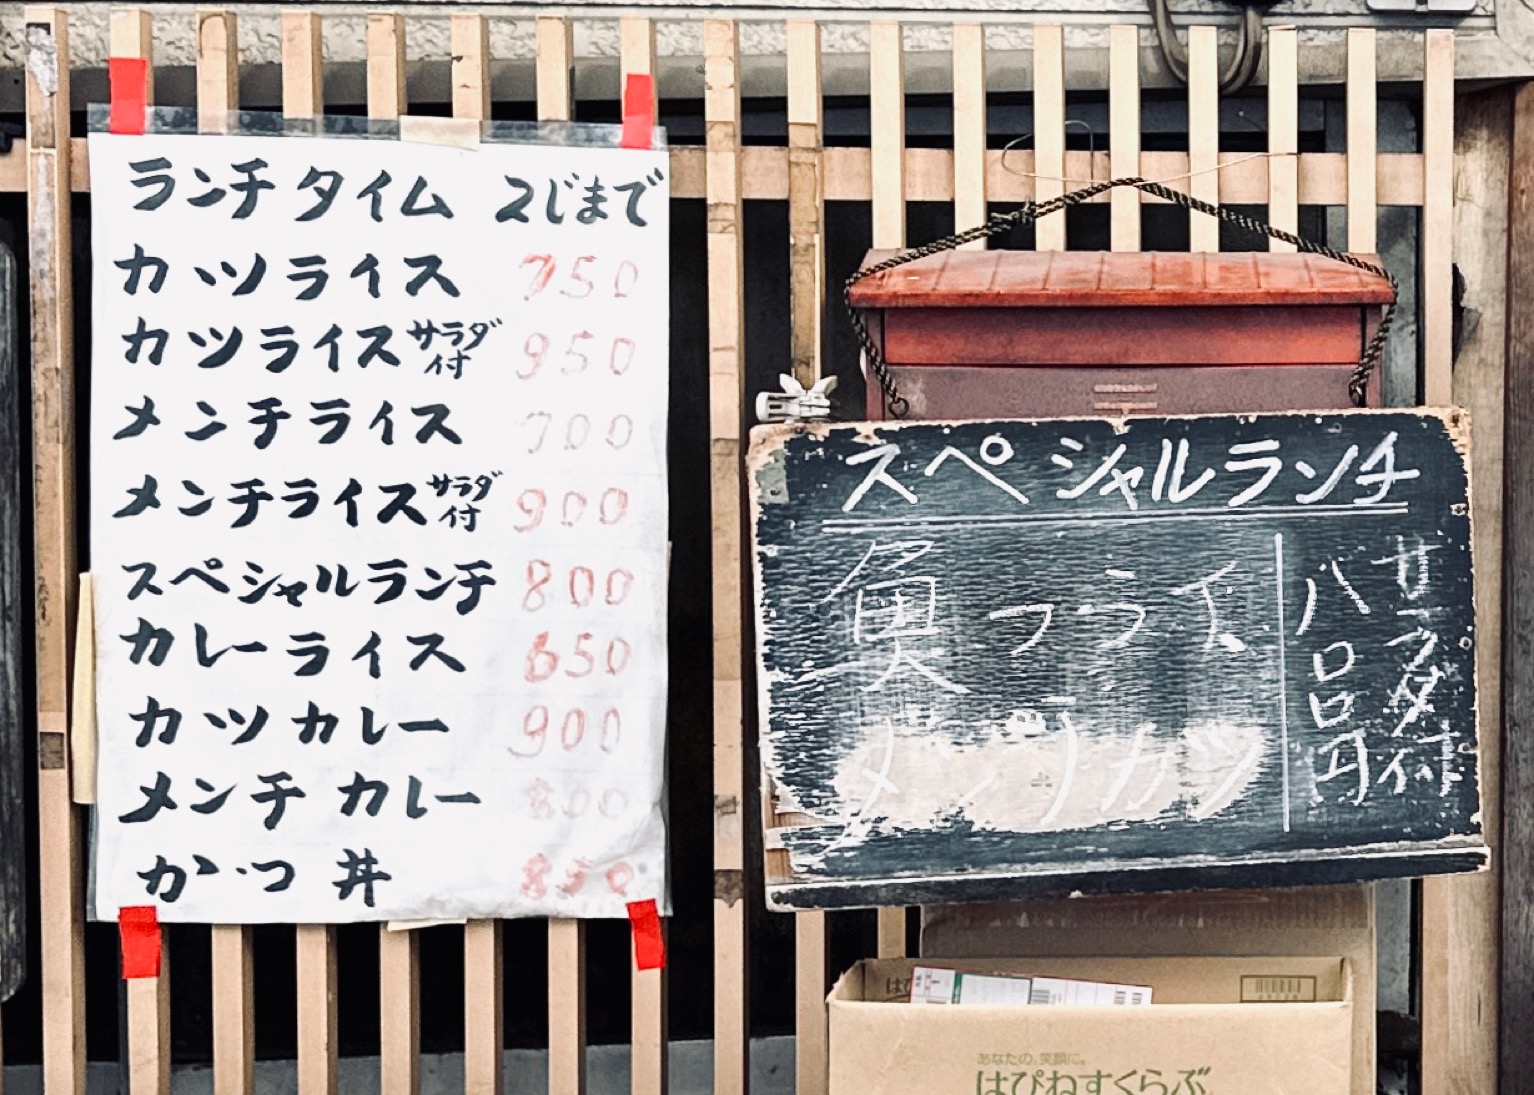 ランチタイム 2じまで
カツライス 750
カツライス サラダ付 950
メンチライス 700
メンチライス サラダ付 900
スペシャルランチ 800
カレーライス 650
カツカレー 900
メンチカレー 800
かつ丼 850
スペシャルランチ
魚フライ
メンチカツ
サラダ付
八〇〇円
あなたの、笑顔に。
はぴねすくらぶ